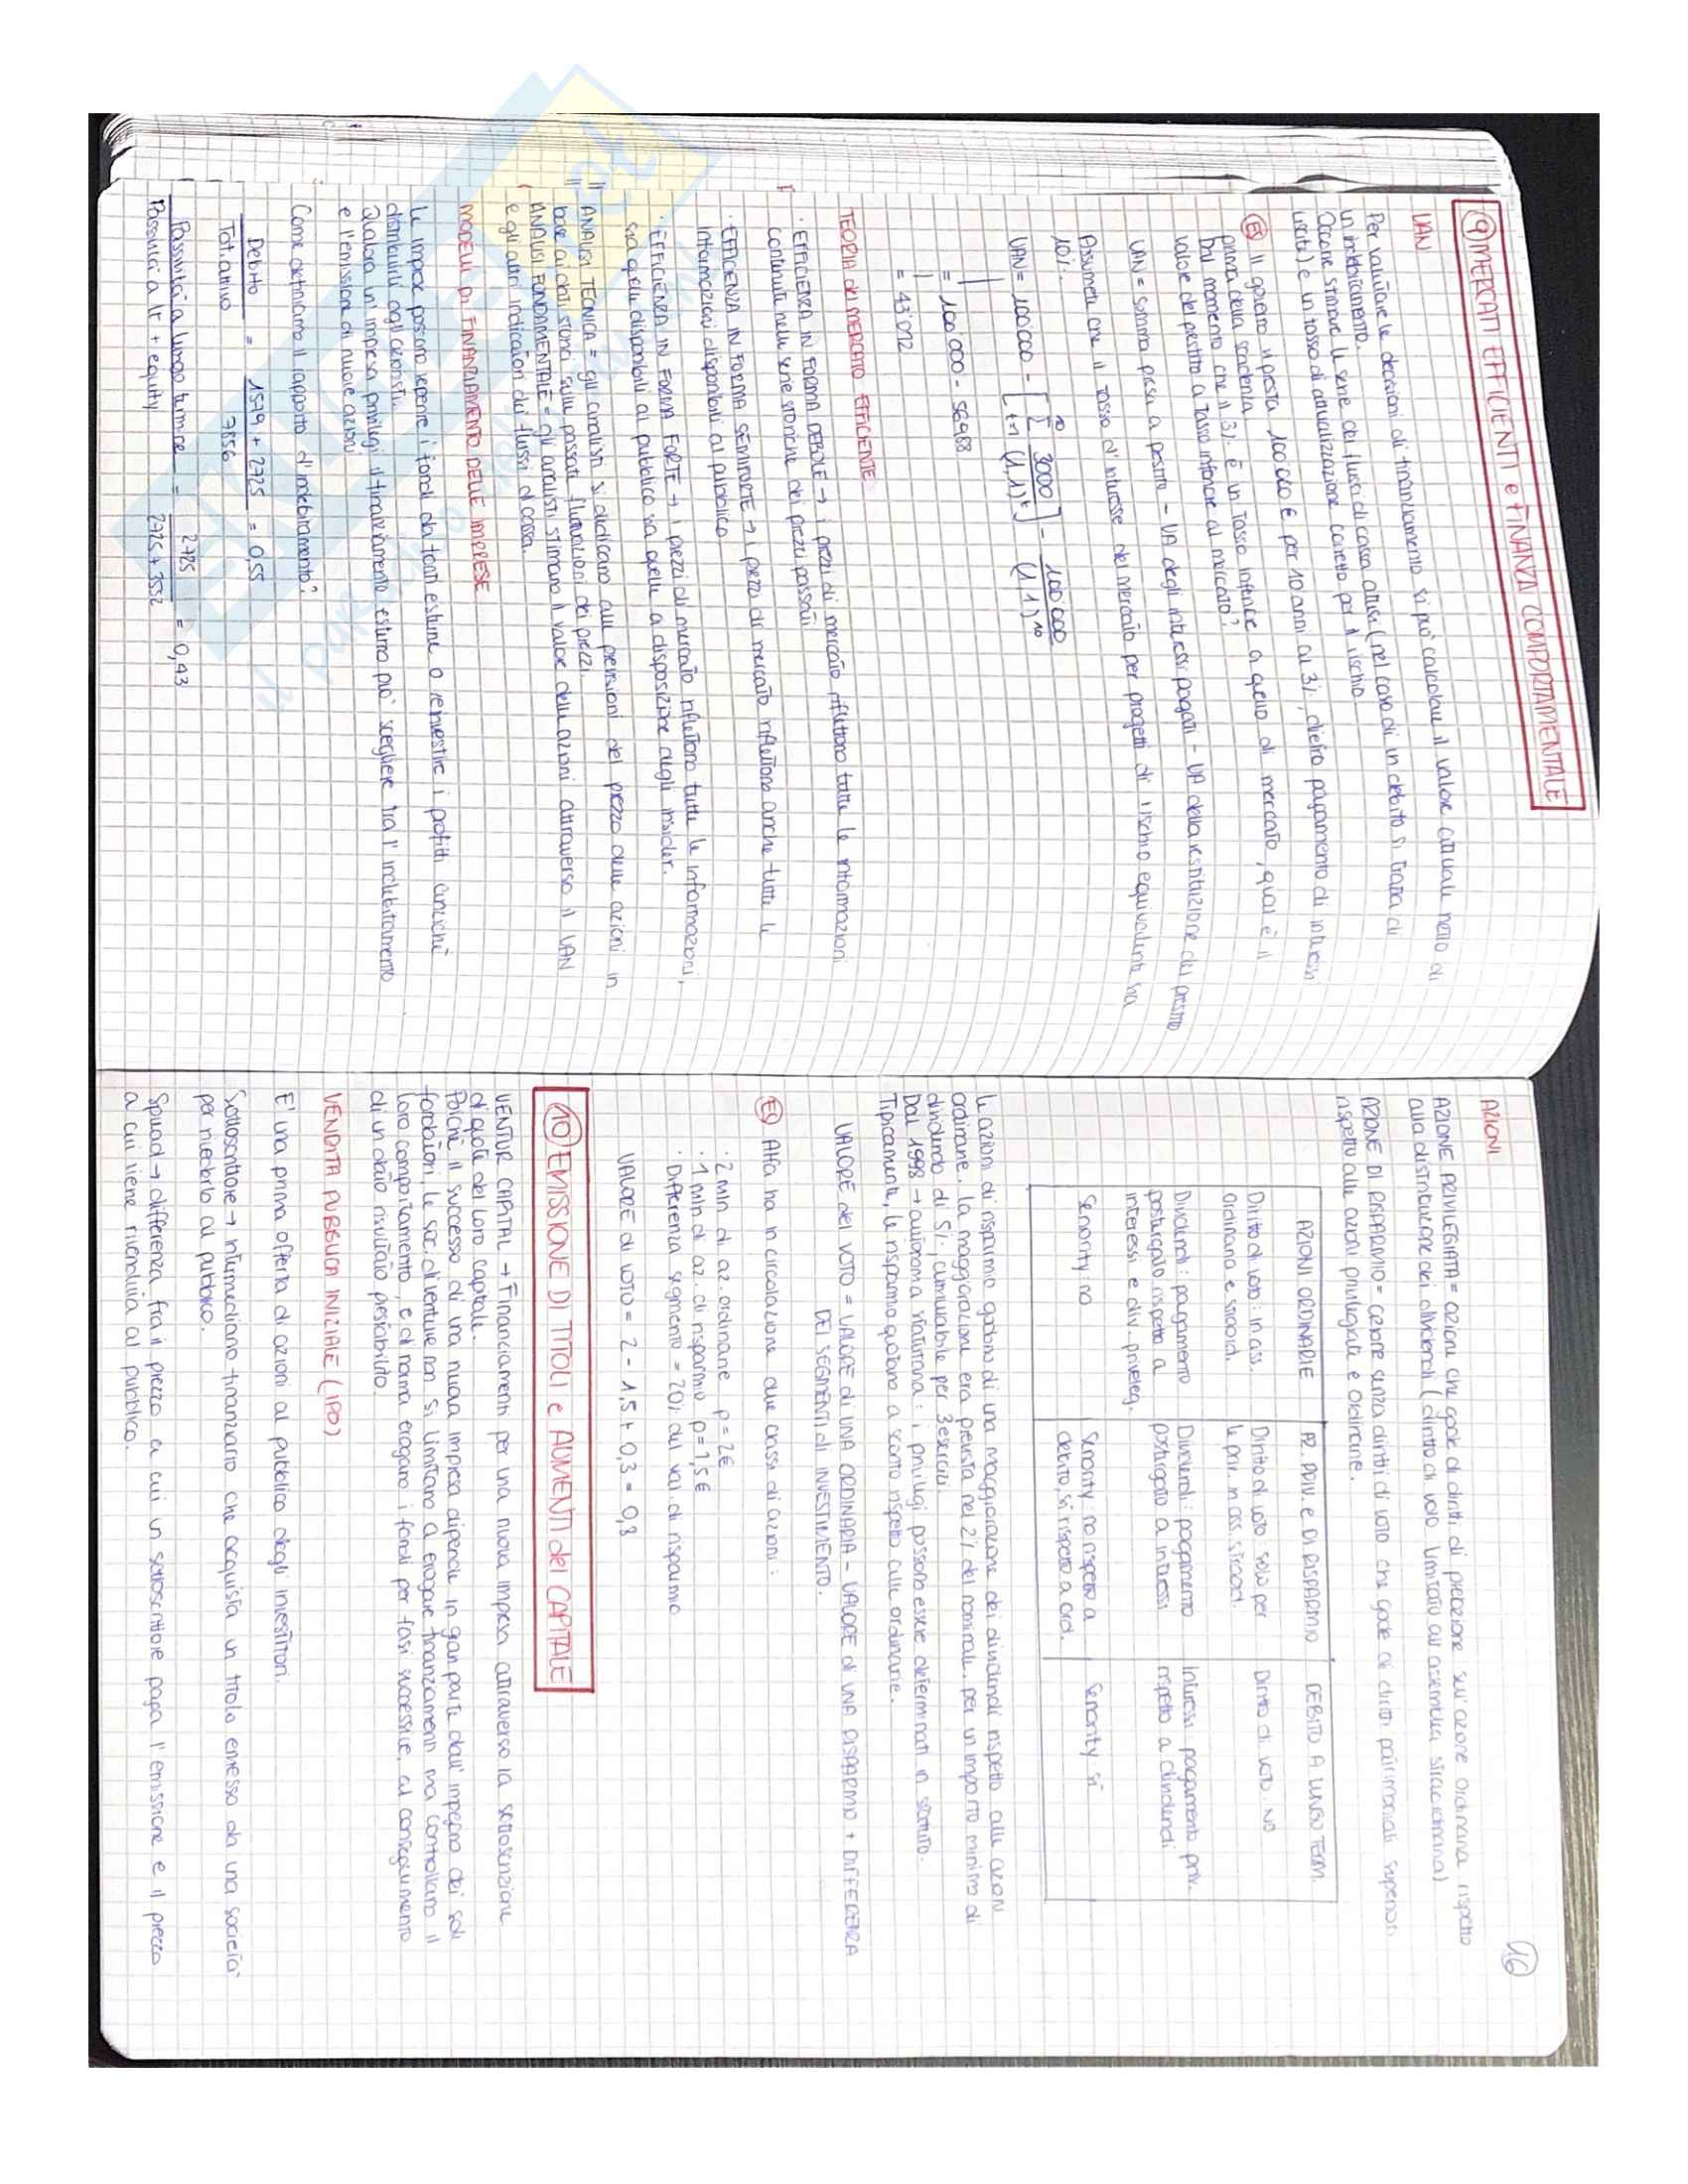 9 MERCATI EFFICIENTI e FINANZA COMPORTAMENTALE
VAN
Per valutare le decisioni di finanziamento si può calcolare il valore attuale netto di
un indebitamento.
Occorre stimare la serie dei flussi di cassa attesi (nel caso di un debito si tratta di
uscite) e un tasso di attualizzazione corretto per il rischio.
ES Il governo vi presta 100 000 € per 10 anni al 3%, dietro pagamento di interessi
prima della scadenza.
Dal momento che il 3% è un tasso inferiore a quello di mercato, qual è il
valore del prestito a tasso inferiore al mercato?
VAN = somma presa a prestito - VA degli interessi pagati - VA della restituzione del prestito
Assumete che il tasso d'interesse del mercato per progetti di rischio equivalente sia
10%.
VAN = 100 000 - [ 10 Σ t=1 3000 / (1,1)^t ] - 100 000 / (1,1)^10
= 100 000 - 56 988
= 43 012
TEORIA del MERCATO EFFICIENTE
· EFFICIENZA IN FORMA DEBOLE → i prezzi di mercato riflettono tutte le informazioni
contenute nelle serie storiche dei prezzi passati
· EFFICIENZA IN FORMA SEMIFORTE → i prezzi di mercato riflettono anche tutte le
informazioni disponibili al pubblico
· EFFICIENZA IN FORMA FORTE → i prezzi di mercato riflettono tutte le informazioni,
sia quelle disponibili al pubblico sia quelle a disposizione degli insider.
ANALISI TECNICA = gli analisti si dedicano alle previsioni del prezzo delle azioni in
base ai dati storici sulle passate fluttuazioni dei prezzi.
ANALISI FONDAMENTALE = gli analisti stimano il valore delle azioni attraverso il VAN
e gli altri indicatori dei flussi di cassa.
MODELLI DI FINANZIAMENTO DELLE IMPRESE
Le imprese possono reperire i fondi da fonti esterne o reinvestire i profitti anziché
distribuirli agli azionisti.
Qualora un'impresa privilegi il finanziamento esterno può scegliere tra l'indebitamento
e l'emissione di nuove azioni
Come definiamo il rapporto d'indebitamento?
Debito / Tot. attivo = 1579 + 2725 / 7856 = 0,55
Passività a lungo termine / Passività a lt + equity = 2725 / 2725 + 3552 = 0,43
16
AZIONI
AZIONE PRIVILEGIATA = azione che gode di diritti di prelazione sull'azione ordinaria rispetto
alla distribuzione dei dividendi (diritto di voto limitato all'assemblea straordinaria)
AZIONE DI RISPARMIO = azione senza diritti di voto che gode di diritti patrimoniali superiori
rispetto alle azioni privilegiate e ordinarie.
AZIONI ORDINARIE AZ. PRIV. E DI RISPARMIO DEBITO A LUNGO TERM.
Diritto di voto: in ass. Diritto di voto: solo per Diritto di voto: NO
ordinaria e straord. le priv. in ass. straord.
Dividendi: pagamento Dividendi: pagamento Interessi: pagamento priv.
posturgato rispetto a postergato a interessi rispetto a dividendi
interessi e div. privileg.
Seniority: no Seniority: no rispetto a Seniority: sì
debito, sì rispetto a ord.
Le azioni di risparmio godono di una maggiorazione dei dividendi rispetto alle azioni
ordinarie. La maggiorazione era prevista nel 2% del nominale, per un importo minimo di
dividendo di 5%, cumulabile per 3 esercizi
Dal 1998 → autonomia statutaria: i privilegi possono essere determinati in statuto.
Tipicamente, le risparmio quotano a sconto rispetto alle ordinarie.
VALORE del VOTO = VALORE di UNA ORDINARIA - VALORE di UNA RISPARMIO + DIFFERENZA
DEI SEGMENTI di INVESTIMENTO.
ES Alfa ha in circolazione due classi di azioni:
· 2 mln di az. ordinarie p = 2€
· 1 mln di az. di risparmio p = 1,5 €
· Differenza segmento = 20% del val. di risparmio
VALORE di VOTO = 2 - 1,5 + 0,3 = 0,8
10 EMISSIONE DI TITOLI e AUMENTI del CAPITALE
VENTUR CAPITAL → Finanziamenti per una nuova impresa attraverso la sottoscrizione
di quote del loro capitale.
Poiché il successo di una nuova impresa dipende in gran parte dall'impegno dei soli
fondatori, le soc. di venture non si limitano a erogare finanziamenti ma controllano il
loro comportamento, e di norma erogano i fondi per fasi successive, al conseguimento
di un dato risultato prestabilito.
VENDITA PUBBLICA INIZIALE (IPO)
E' una prima offerta di azioni al pubblico degli investitori.
Sottoscrittore → intermediario finanziario che acquista un titolo emesso da una società
per rivenderlo al pubblico.
Spread → differenza fra il prezzo a cui un sottoscrittore paga l'emissione e il prezzo
a cui viene rivenduta al pubblico.